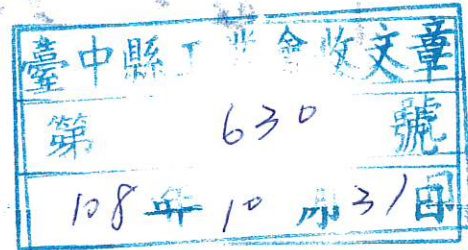 臺中縣工業會收文章
第 630 號
108年10月31日